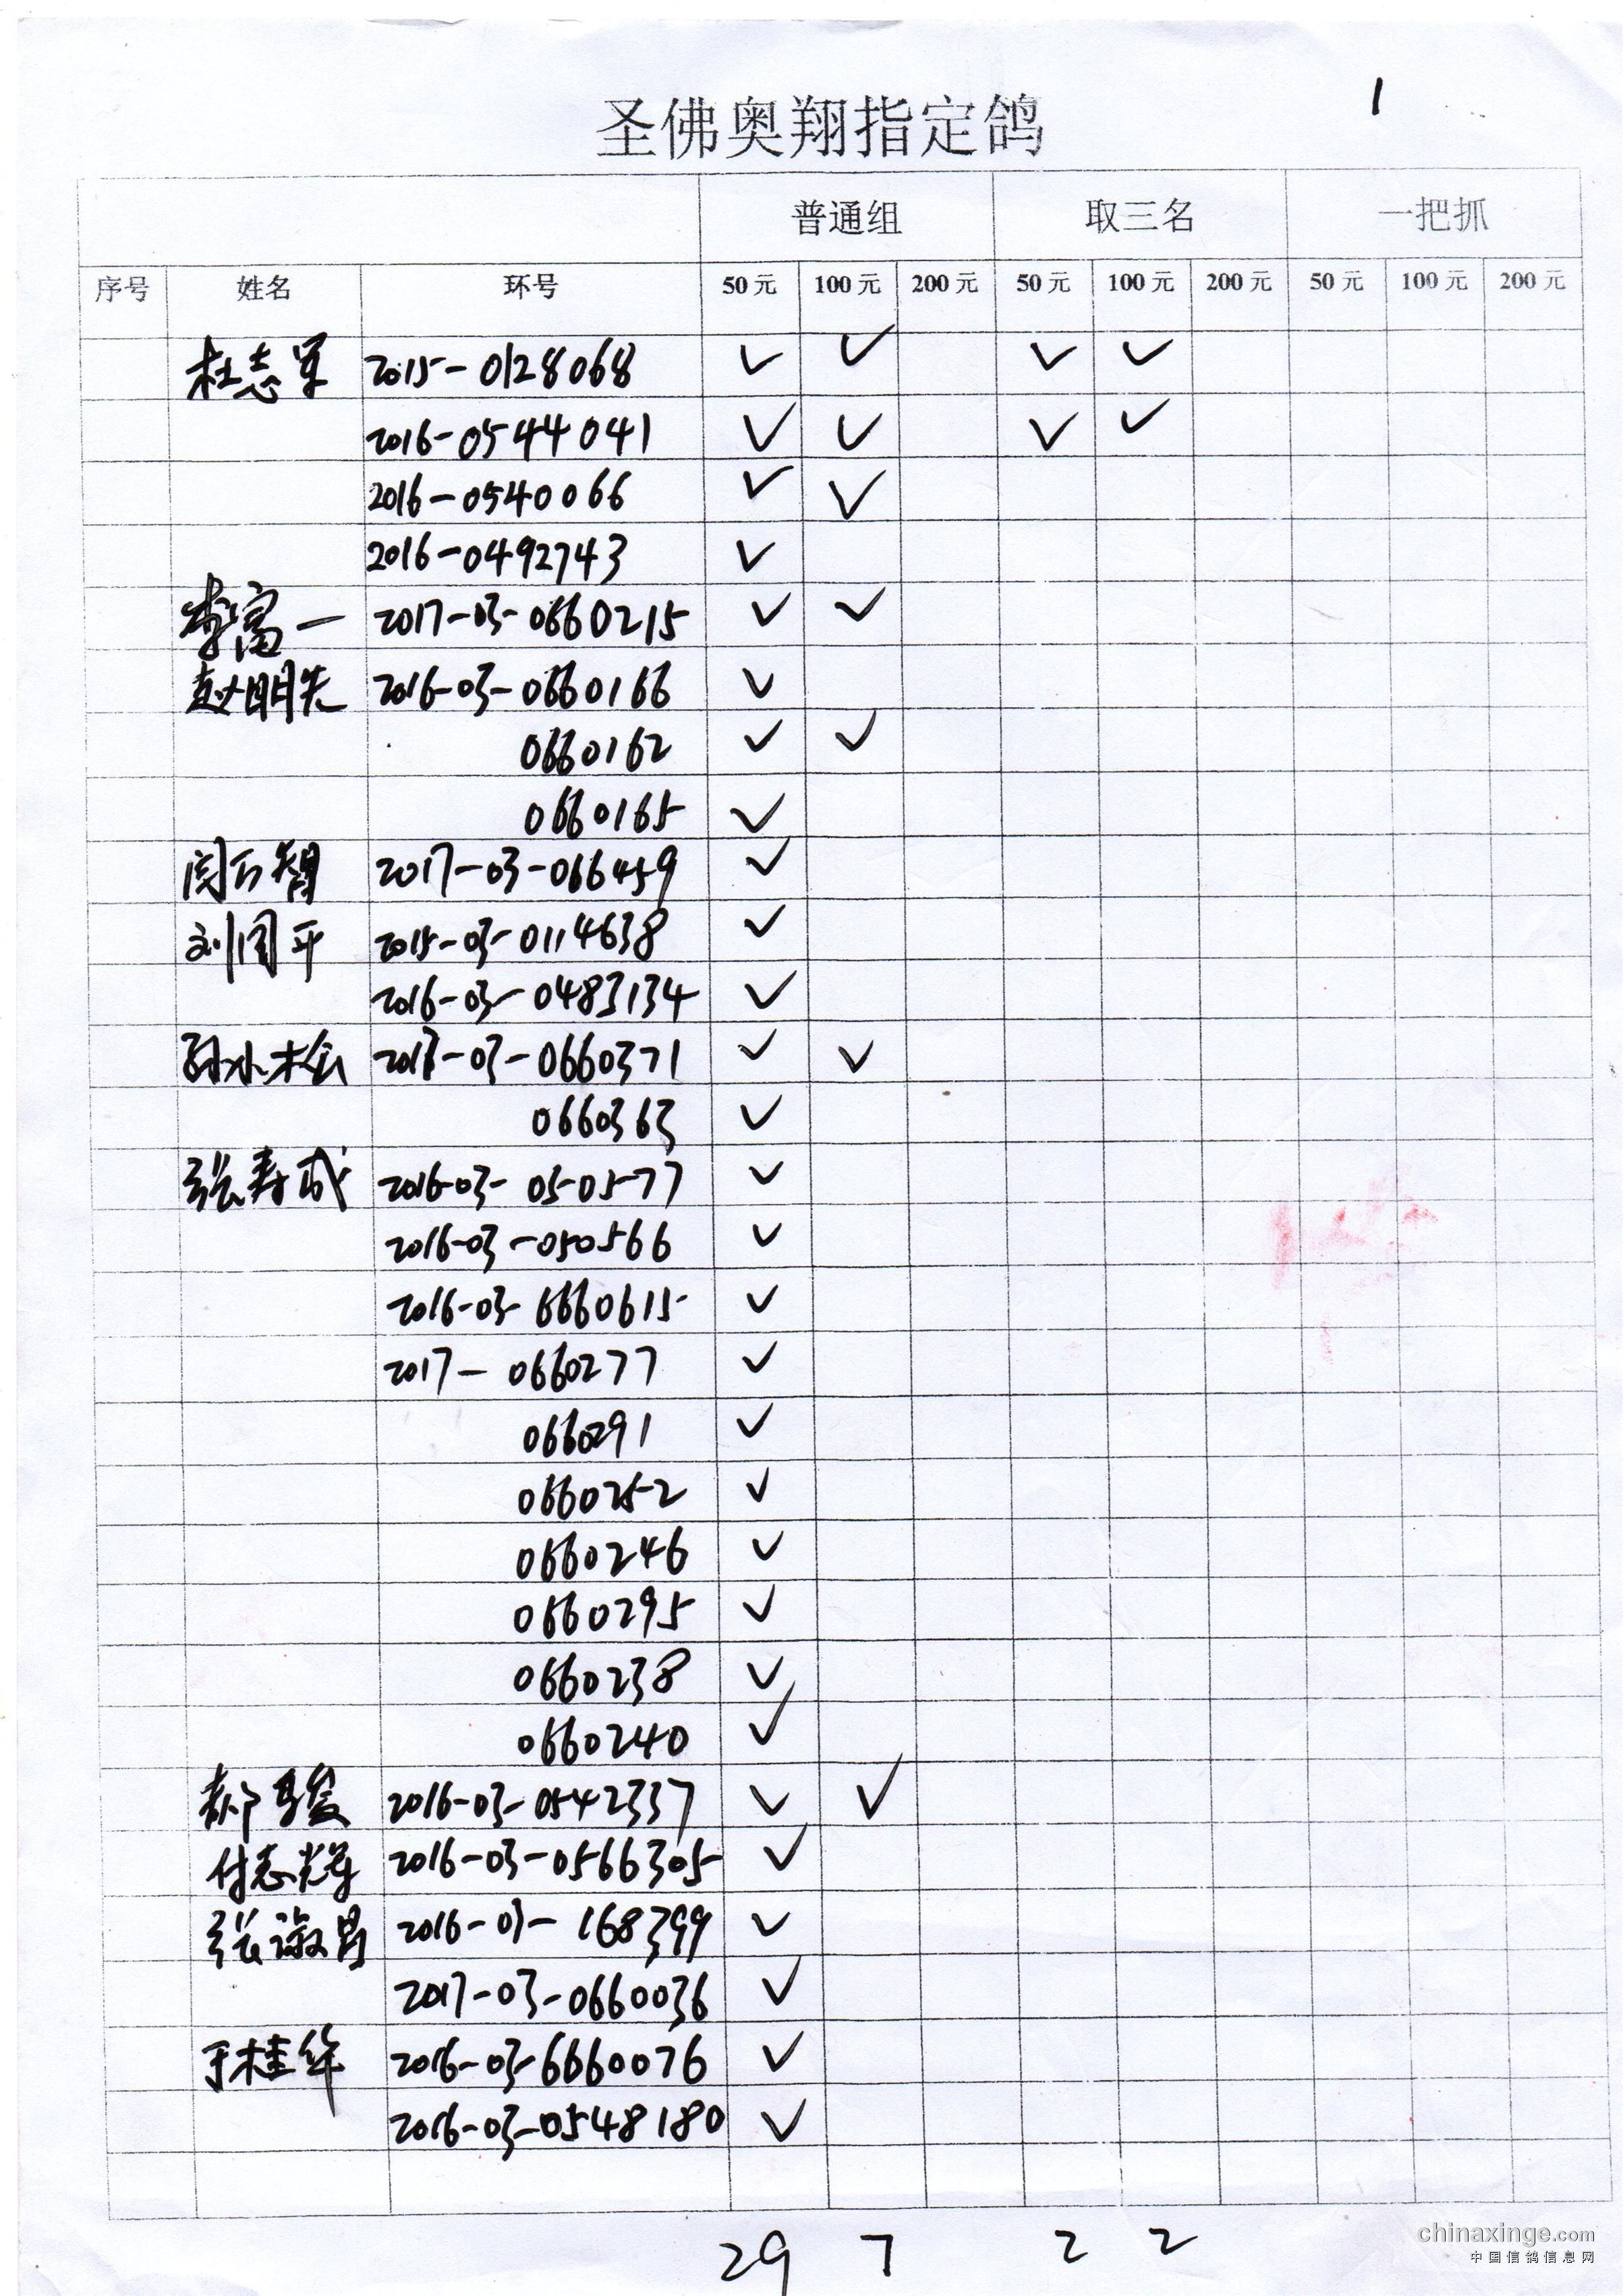 1
圣佛奥翔指定鸽
普通组 取三名 一把抓
序号 姓名 环号 50元 100元 200元 50元 100元 200元 50元 100元 200元
杜志军 2015-0128068 ✓ ✓ ✓ ✓
2016-0544041 ✓ ✓ ✓ ✓
2016-0540066 ✓ ✓
2016-0492743 ✓
李富一 2017-03-0660215 ✓ ✓
赵明先 2016-03-0660166 ✓
0660162 ✓ ✓
0660165 ✓
闫万智 2017-03-066459 ✓
刘同平 2015-03-0114638 ✓
2016-03-0483134 ✓
孙水松 -03-0660371 ✓ ✓
0660363 ✓
张寿成 2016-03-050577 ✓
2016-03-050566 ✓
2016-03-6660615 ✓
2017-0660277 ✓
0660291 ✓
0660252 ✓
0660246 ✓
0660295 ✓
0660238 ✓
0660240 ✓
郝 2016-03-0542337 ✓ ✓
付志辉 2016-03-0566305 ✓
张淑 2016-01-168399 ✓
2017-03-0660036 ✓
于桂华 2016-03-6660076 ✓
2016-03-0548180 ✓
29 7 2 2
chinaxinge.com
中国信鸽信息网